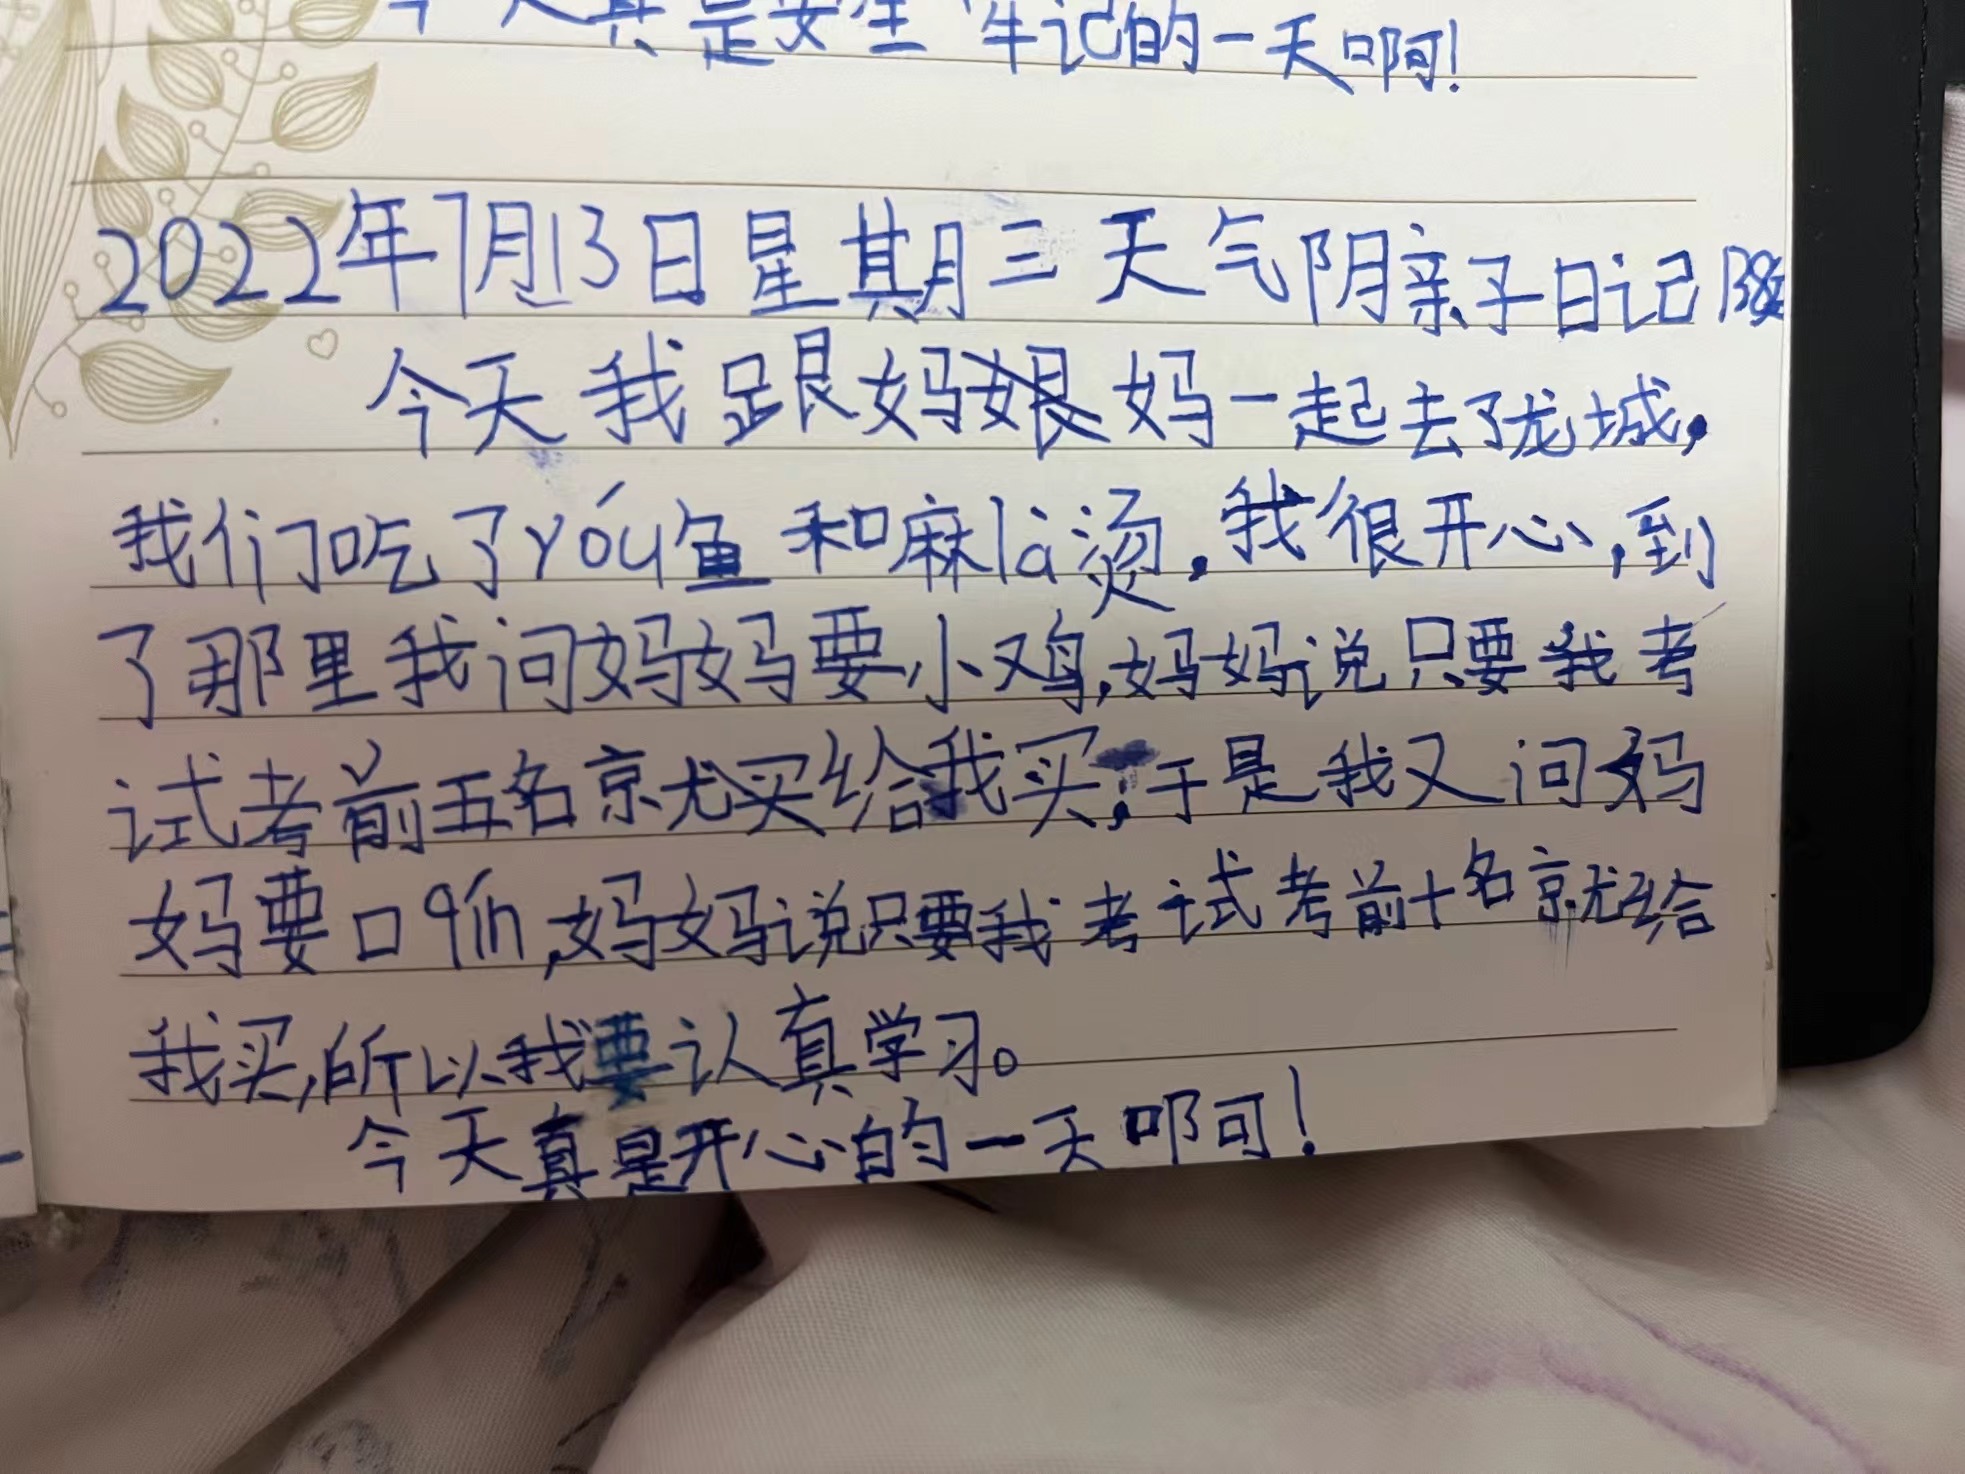 今天真是安全牢记的一天啊!
2022年7月13日星期三天气阴亲子日记
今天我跟妈妈一起去了龙城,
我们吃了yóu鱼和麻là烫.我很开心,到
了那里我问妈妈要小鸡,妈妈说只要我考
试考前五名就买给我买,于是我又问妈
妈要口qín,妈妈说只要我考试考前十名就给
我买,所以我要认真学习。
今天真是开心的一天啊!